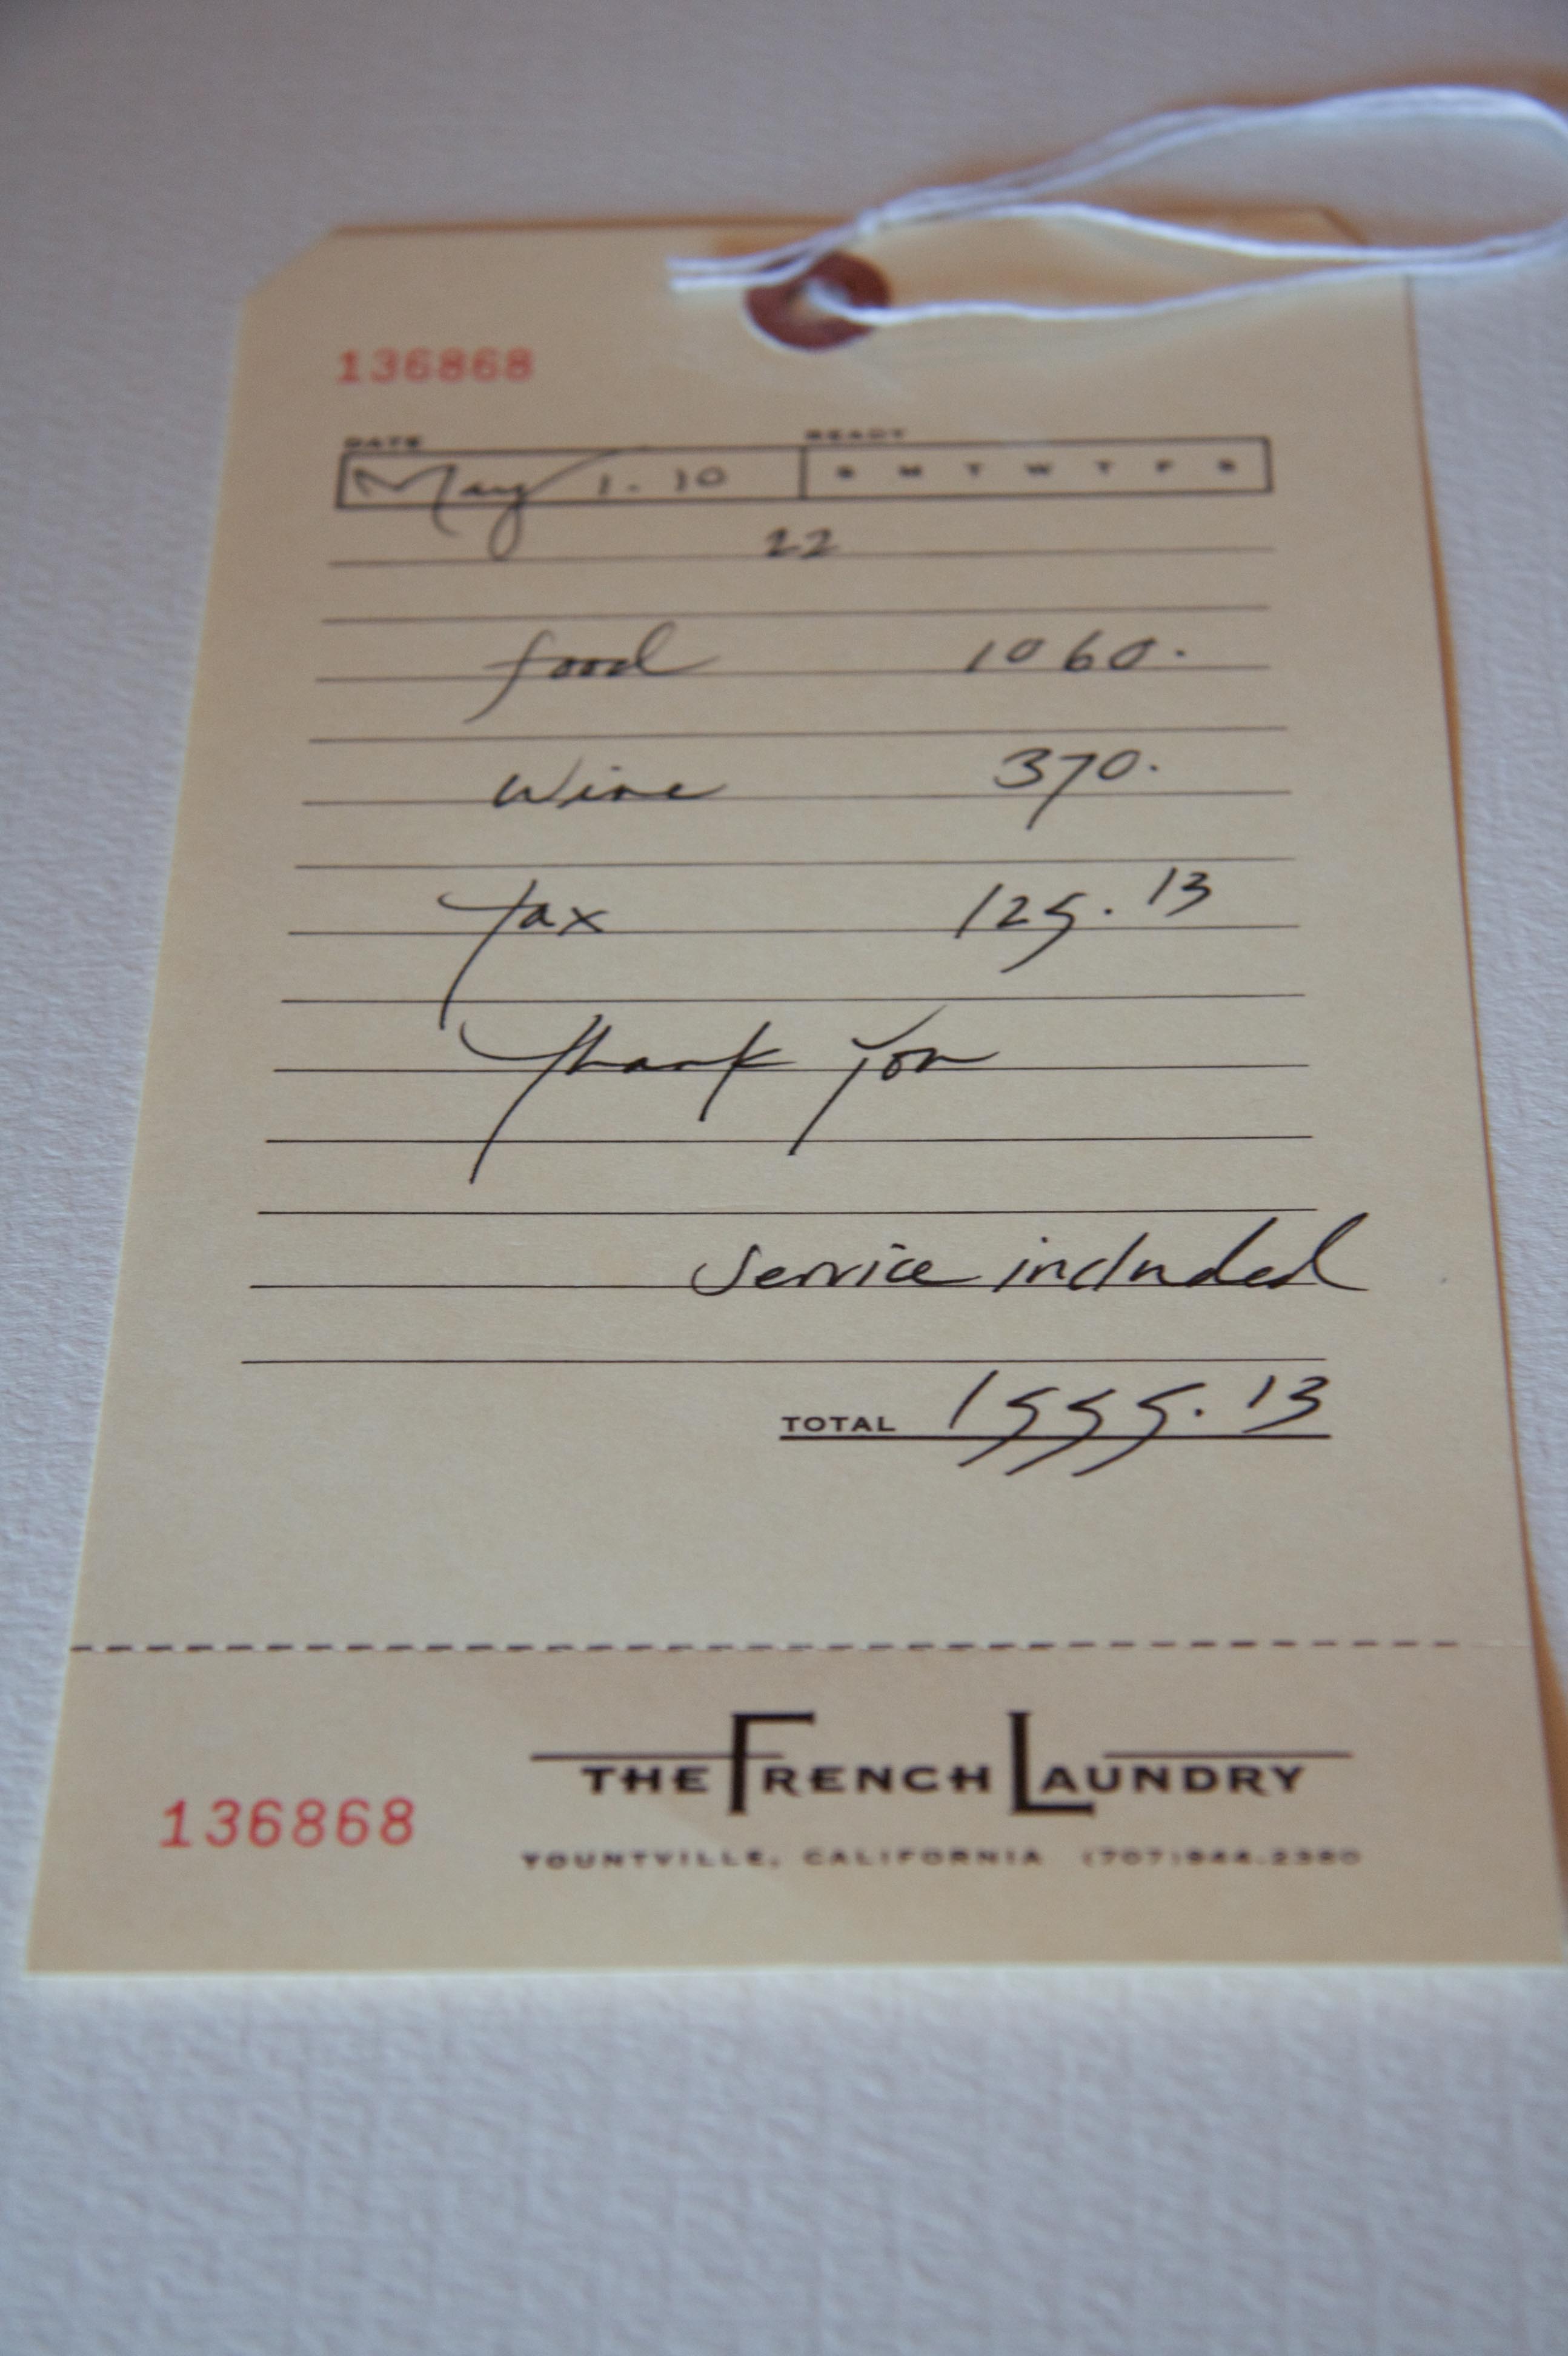 136868
DATE READY
May 1. 10 S M T W T F S
22
food 1060.
wine 370.
tax 125.13
Thank you
Service included
TOTAL 1555.13
THE FRENCH LAUNDRY
136868
YOUNTVILLE, CALIFORNIA (707) 944.2380